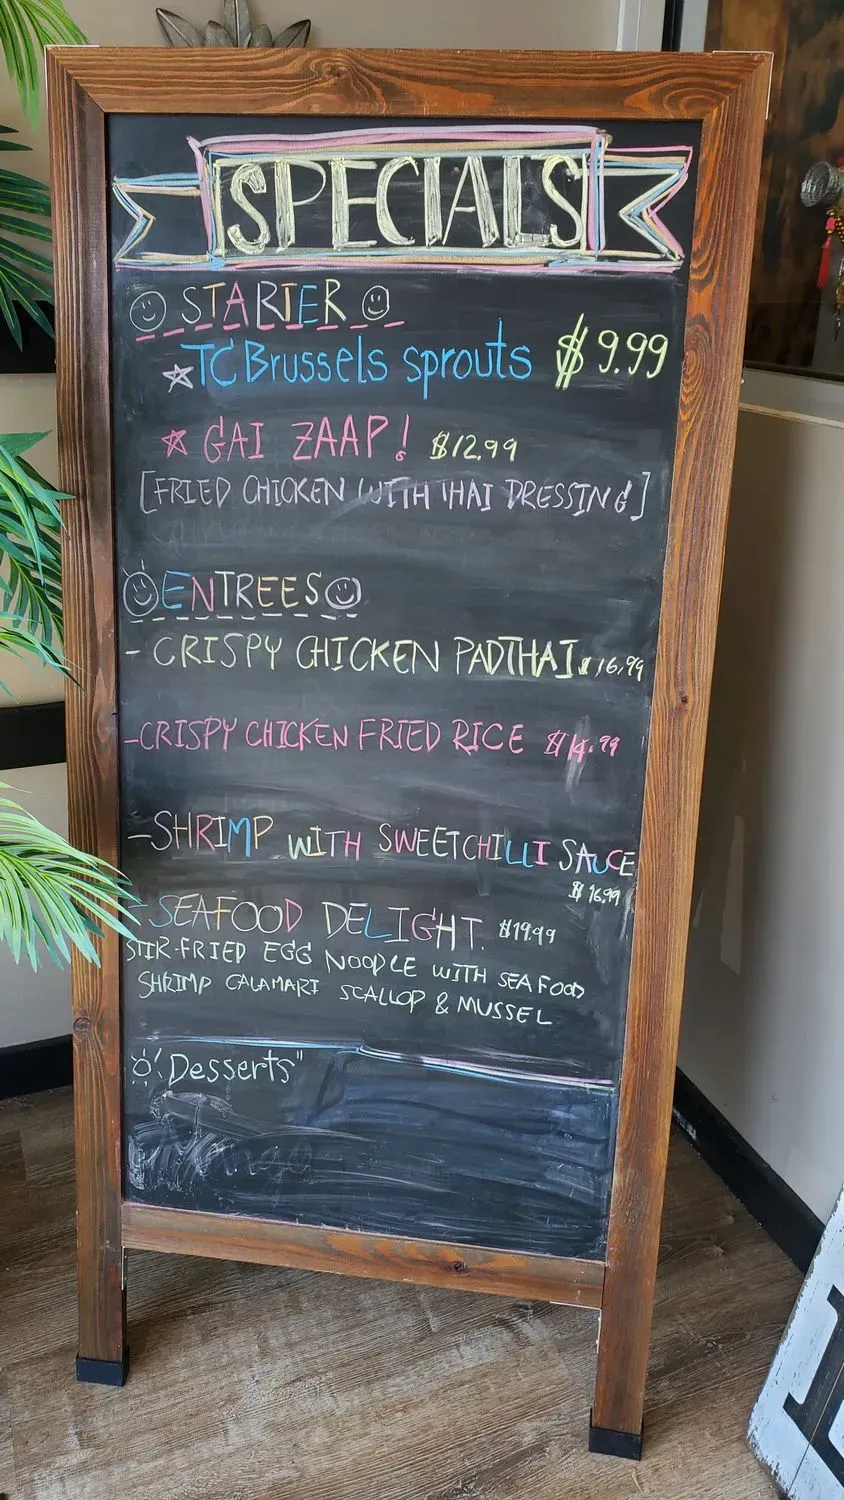 SPECIALS
STARTER
TC Brussels sprouts $9.99
GAI ZAAP! $12.99
[FRIED CHICKEN WITH THAI DRESSING]
ENTREES
- CRISPY CHICKEN PADTHAI $16.99
-CRISPY CHICKEN FRIED RICE $14.99
-SHRIMP WITH SWEETCHILLI SAUCE
$16.99
-SEAFOOD DELIGHT. $19.99
STIR-FRIED EGG NOODLE WITH SEAFOOD
SHRIMP CALAMARI SCALLOP & MUSSEL
"Desserts"